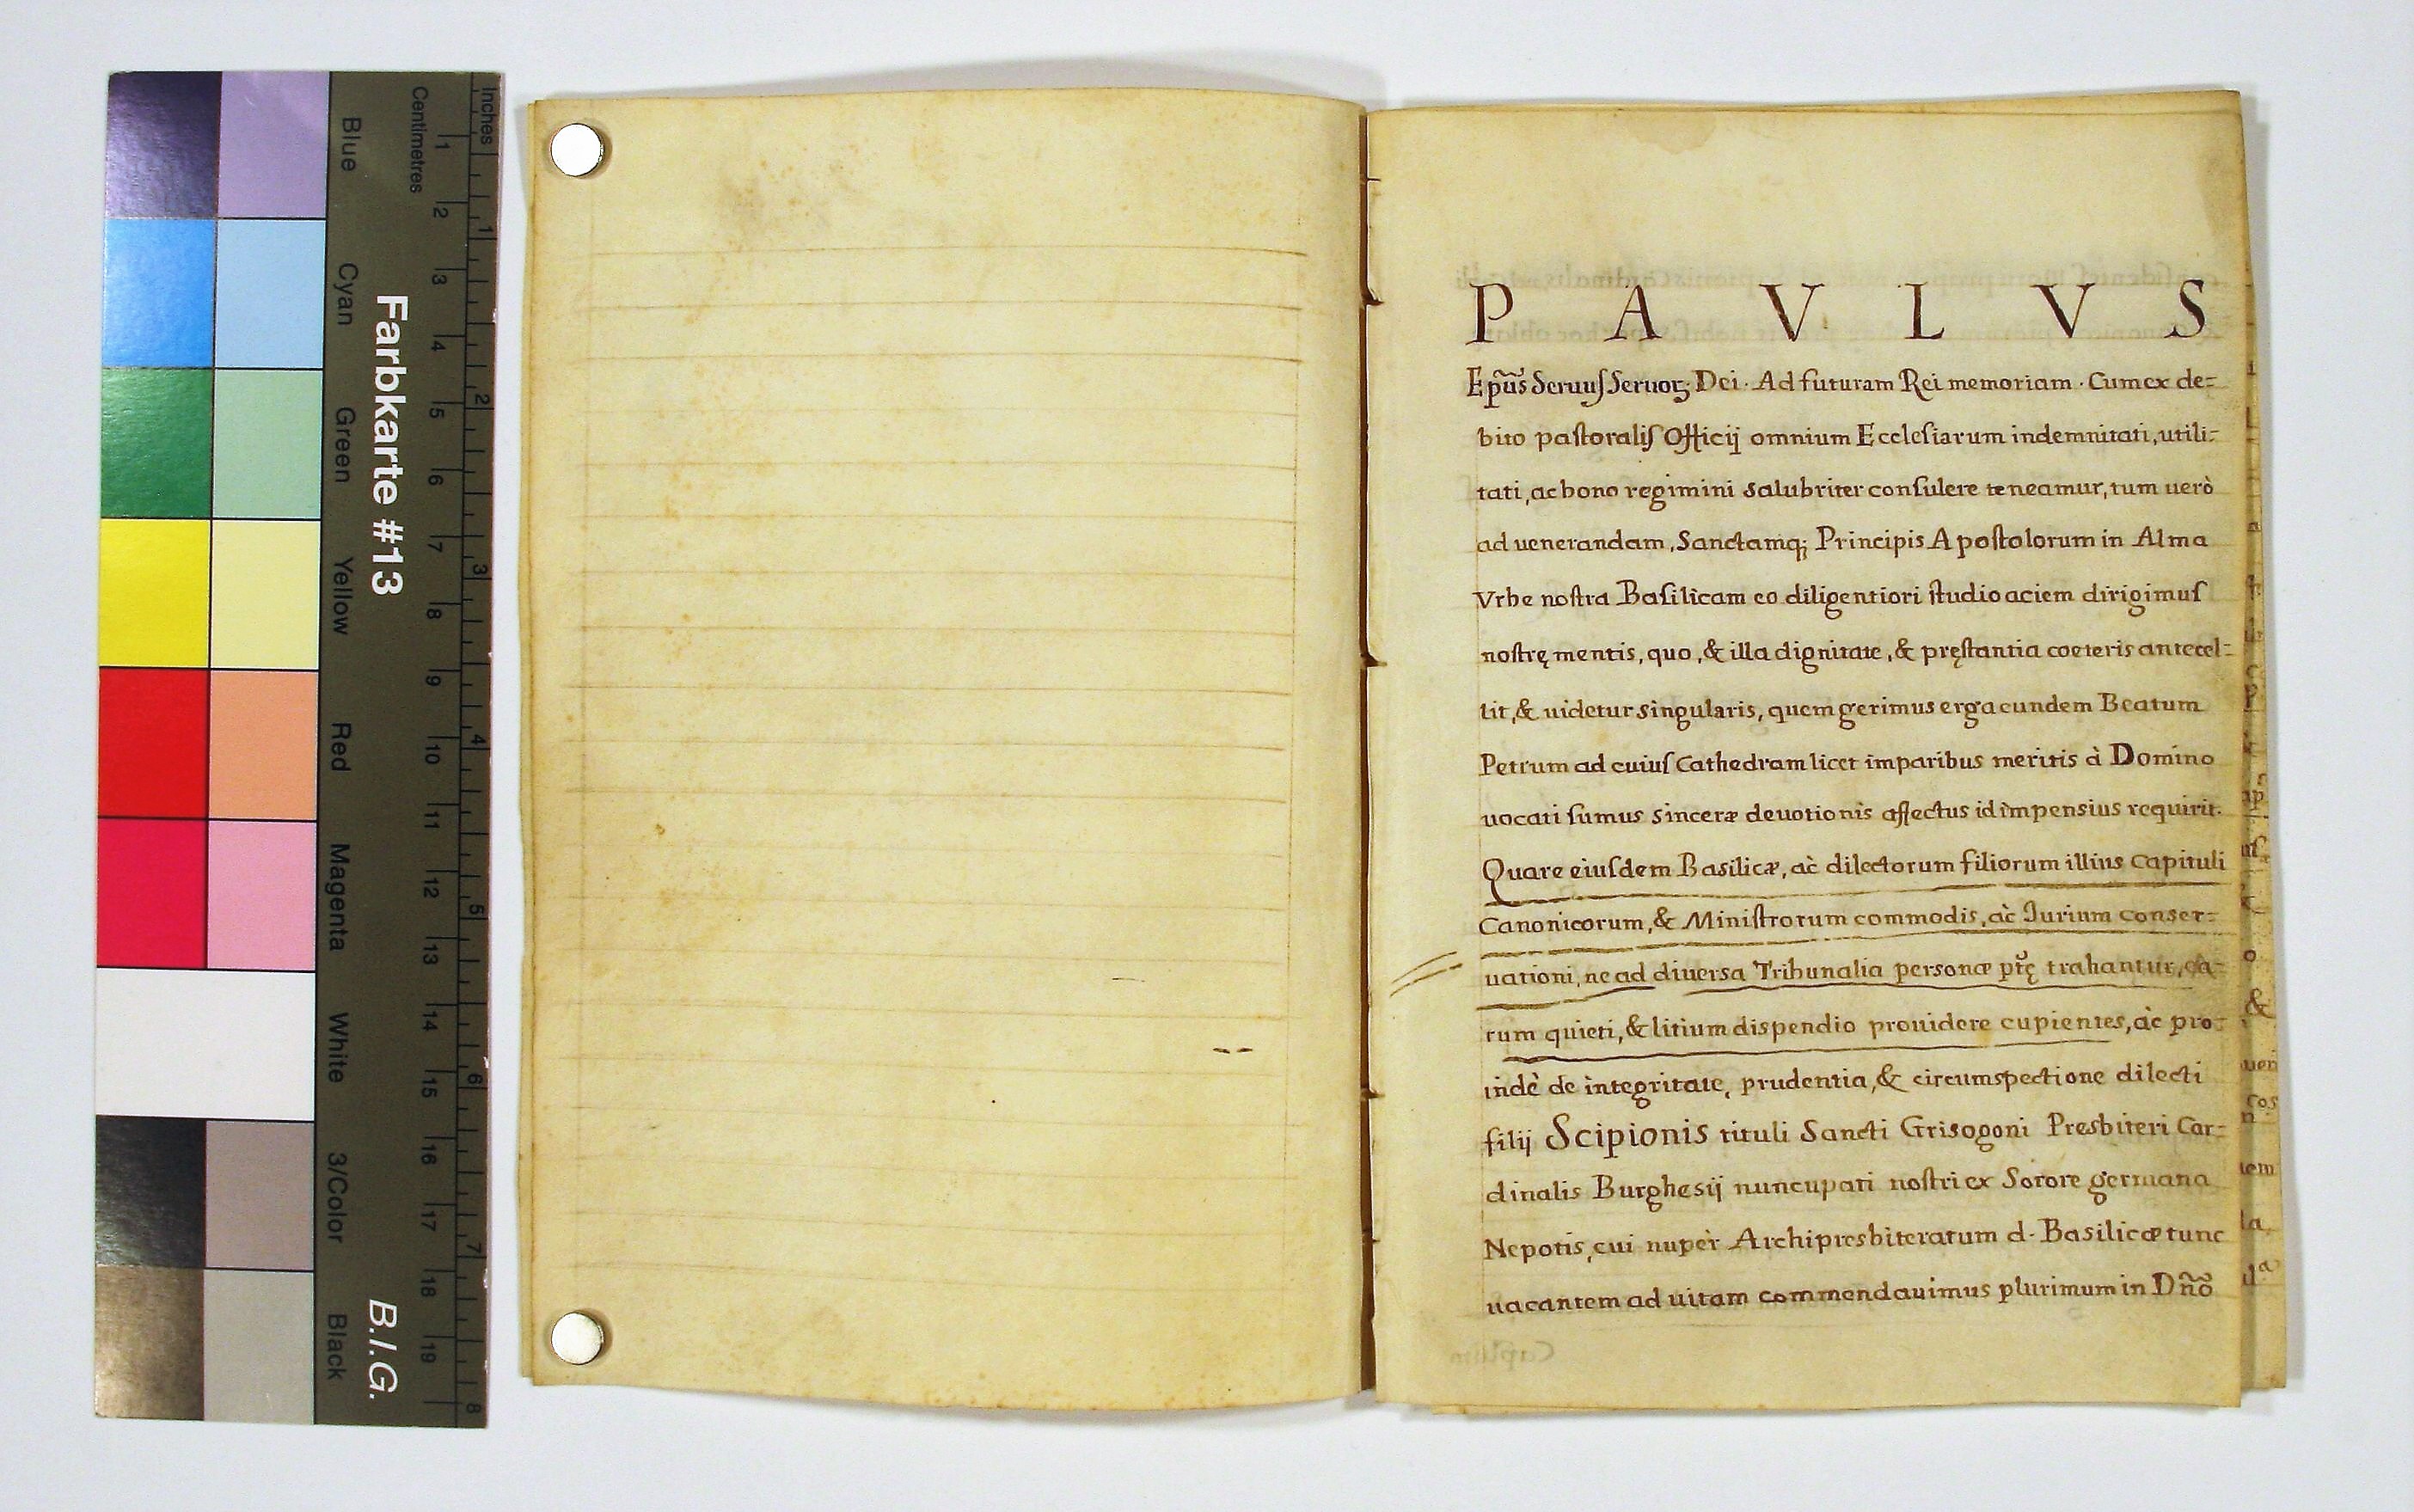 Blue
Cyan
Green
Yellow
Red
Magenta
White
3/Color
Black
Farbkarte #13
B.I.G.
Centimetres
1 2 3 4 5 6 7 8 9 10 11 12 13 14 15 16 17 18 19
Inches
1 2 3 4 5 6 7 8
P A V L V S
Ep̃us Seruuſ Seruoꝝ Dei · Ad futuram Rei memoriam · Cum ex de=
bito paſtoraliſ Officij omnium Eccleſiarum indemnitati, utili=
tati, ac bono regimini salubriter conſulere teneamur, tum uerò
ad uenerandam, Sanctamq; Principis Apoſtolorum in Alma
Vrbe noſtra Baſilicam eo diligentiori ſtudio aciem dirigimuſ
noſtrę mentis, quo, & illa dignitate, & pręſtantia coeteris antecel=
lit, & uidetur singularis, quem gerimus erga eundem Beatum
Petrum ad cuiuſ Cathedram licet imparibus meritis à Domino
uocati ſumus sinceræ deuotionis affectus id impensius requirit.
Quare eiuſdem Basilicæ, ac̀ dilectorum filiorum illius Capituli
Canonicorum, & Miniſtrorum commodis, ac̀ Iurium conser=
uationi, ne ad diuersa Tribunalia personæ p̃tę trahantur, ea=
rum quieti, & litium dispendio prouidere cupientes, ac̀ pro=
indè de integritate, prudentia, & circumspectione dilecti
filij Scipionis tituli Sancti Grisogoni Presbiteri Car=
dinalis Burghesij nuncupati noſtri ex Sorore germana
Nepotis, cui nupèr Archipresbiteratum d. Basilicæ tunc
uacantem ad uitam commendauimus plurimum in Dño